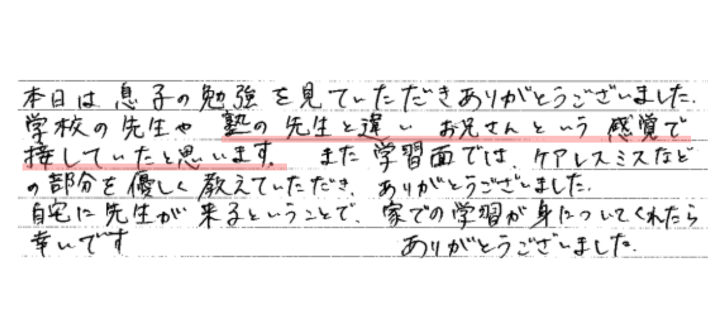 本日は息子の勉強を見ていただきありがとうございました.
学校の先生や塾の先生と違いお兄さんという感覚で
接していたと思います. また学習面では、ケアレスミスなど
の部分を優しく教えていただき、ありがとうございました.
自宅に先生が来るということで、家での学習が身についてくれたら
幸いです ありがとうございました.